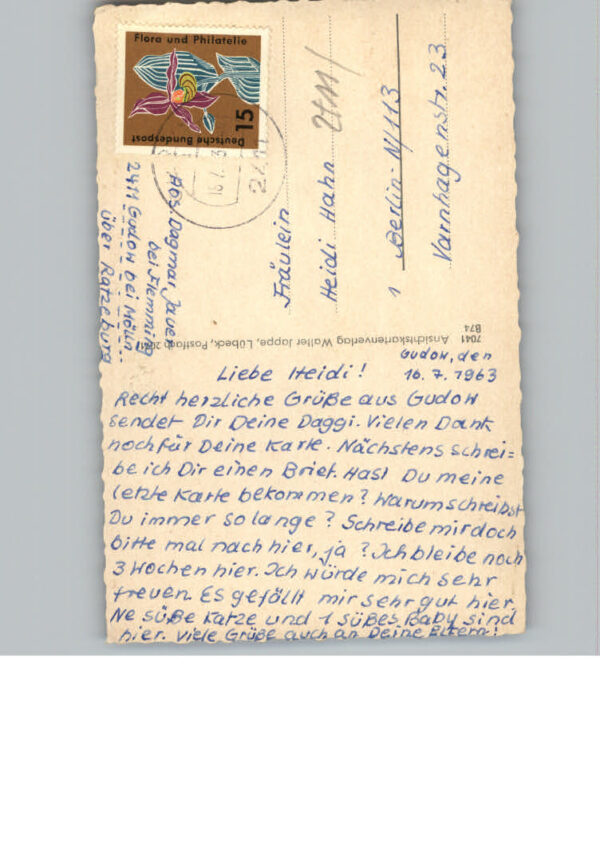 Flora und Philatelie
15
Deutsche Bundespost
Abs. Dagmar
bei Flemming
2411 Gudow bei Mölln
über Ratzeburg
Fräulein
Heidi Hahn
1 Berlin-N/113
Varnhagenstr. 23
7041 Ansichtskartenverlag Walter Jappe, Lübeck, Postfach
B74
Gudow, den
16.7.1963
Liebe Heidi!
Recht herzliche Grüße aus Gudow
sendet Dir Deine Daggi. Vielen Dank
noch für Deine Karte. Nächstens schrei=
be ich Dir einen Brief. Hast Du meine
letzte Karte bekommen? Warum schreibst
Du immer so lange? Schreibe mir doch
bitte mal nach hier, ja? Ich bleibe noch
3 Wochen hier. Ich würde mich sehr
freuen. Es gefällt mir sehr gut hier.
Ne süße Katze und 1 süßes Baby sind
hier. Viele Grüße auch an Deine Eltern!